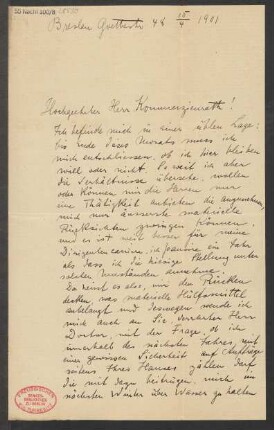 Breslau 48 15/4 1901
Hochgeehrter Herr Kommerzienrath!
Ich befinde mich in einer üblen Lage:
bis Ende dieses Monats muss ich
mich entschliessen, ob ich hier bleiben
will oder nicht. So weit ich aber
die Verhältnisse übersehe, wollen
oder können mir die Herren nur
eine Thätigkeit anbieten die anzunehmen
mich nur äusserste materielle
Rücksichten zwingen können,
und es ist weit besser für meine
Dirigentencarrière, ich pausiere ein Jahr
als dass ich die hiesige Stellung unter
solchen Umständen annehme.
Da heisst es also, mir den Rücken
decken, was materielle Hülfsmittel
anbelangt und deswegen wende ich
mich auch an Sie, verehrter Herr
Doctor, mit der Frage, ob ich
innerhalb des nächsten Jahres mit
einer gewissen Sicherheit auf Aufträge
seitens Ihres Hauses zählen darf
die mit dazu beitrügen, mich im
nächsten Winter über Wasser zu halten